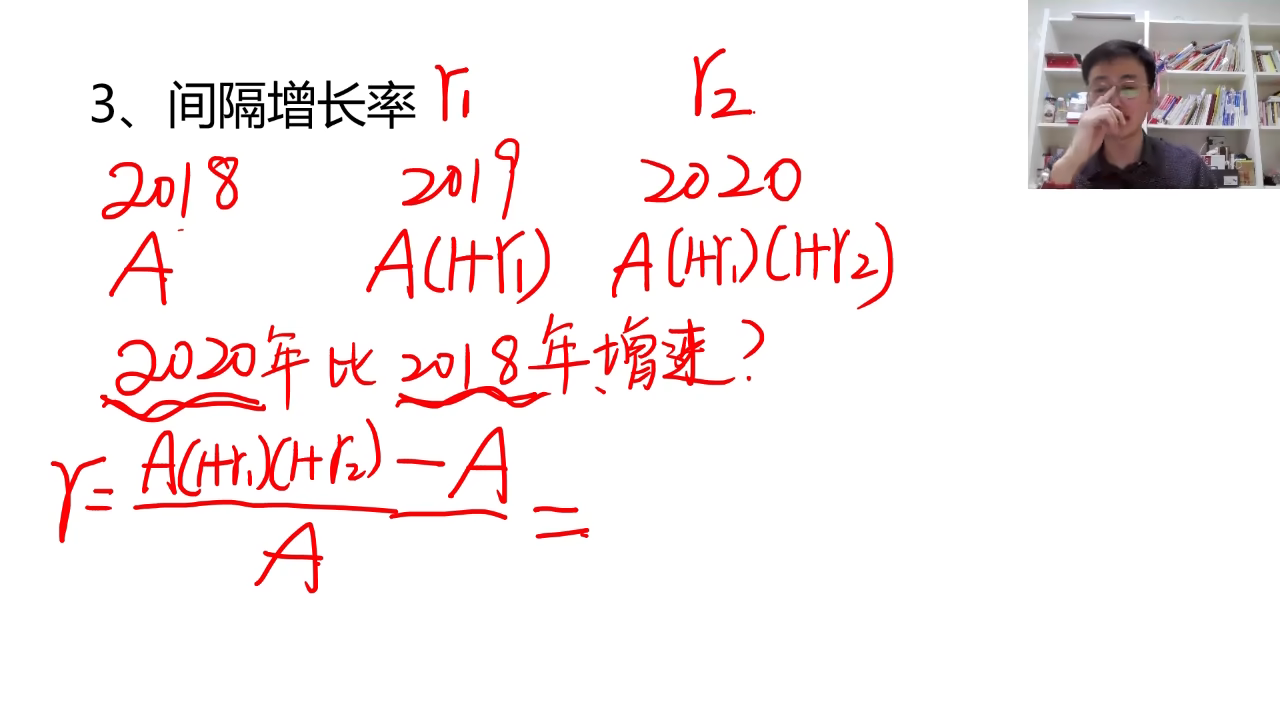 3、间隔增长率 r₁ r₂
2018 2019 2020
A A(1+r₁) A(1+r₁)(1+r₂)
2020年比2018年增速?
r= A(1+r₁)(1+r₂)-A =
A